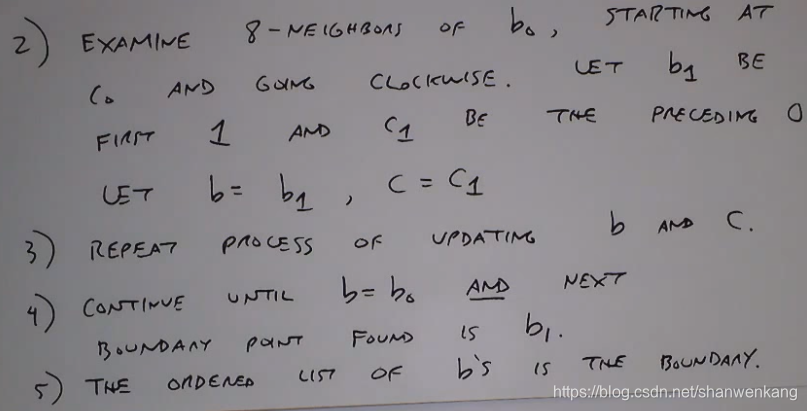 2) EXAMINE 8-NEIGHBORS OF b₀, STARTING AT
C₀ AND GOING CLOCKWISE. LET b₁ BE
FIRST 1 AND C₁ BE THE PRECEDING 0
LET b = b₁, C = C₁
3) REPEAT PROCESS OF UPDATING b AND C.
4) CONTINUE UNTIL b = b₀ AND NEXT
BOUNDARY POINT FOUND IS b₁.
5) THE ORDERED LIST OF b's IS THE BOUNDARY.
https://blog.csdn.net/shanwenkang